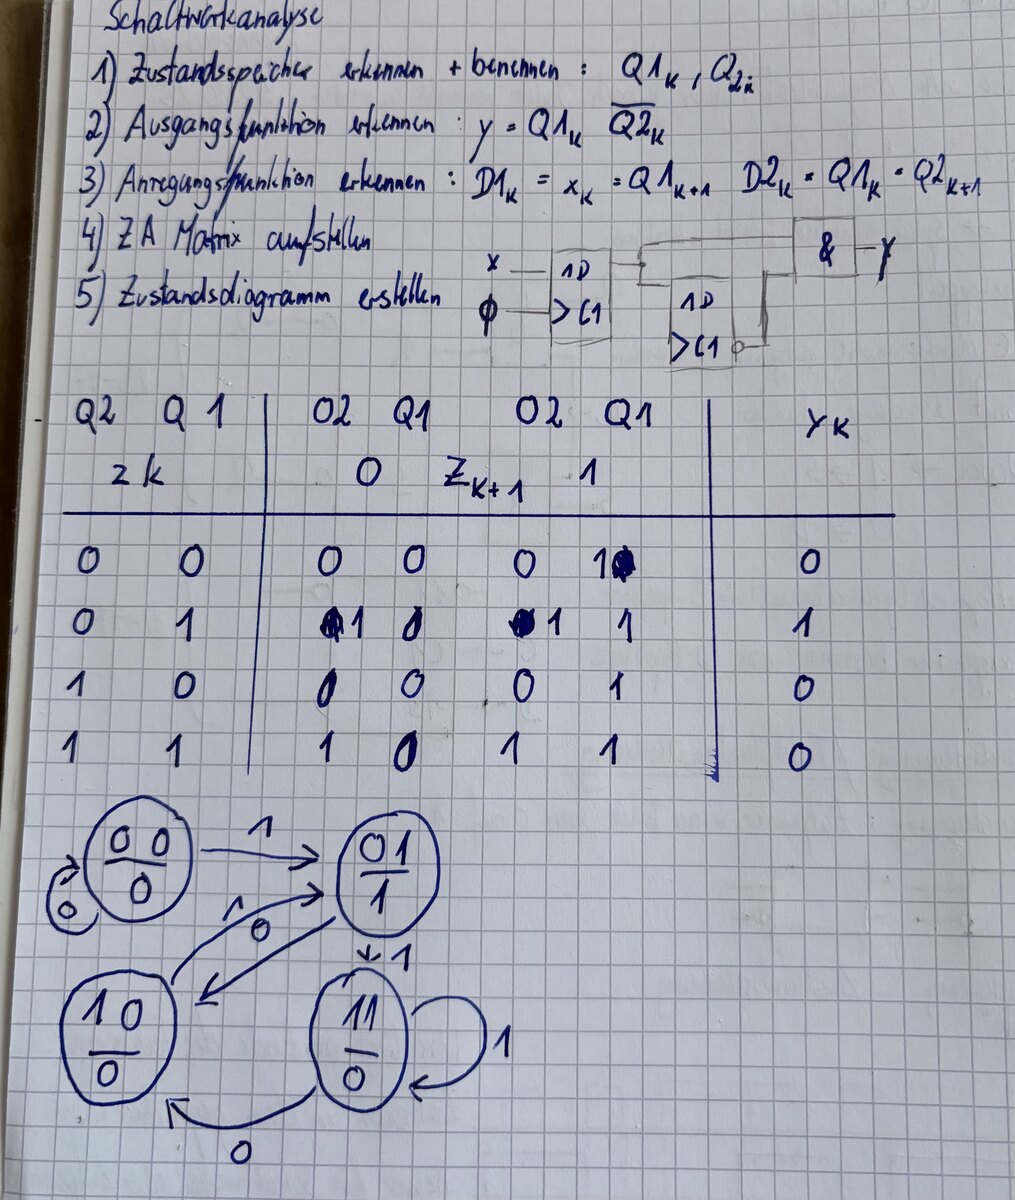 Schaltwerkanalyse
1) Zustandsspeicher erkennen + benennen : Q1ₖ , Q₂ₖ
2) Ausgangsfunktion erkennen : y = Q1ₖ Q̅2̅ₖ
3) Anregungsfunktion erkennen : D1ₖ = xₖ = Q1ₖ₊₁ D2ₖ = Q1ₖ = Q2ₖ₊₁
4) ZA Matrix aufstellen
5) Zustandsdiagramm erstellen
x 1D & y
ϕ >C1 1D
>C1
Q2 Q1 Q2 Q1 Q2 Q1 yₖ
zₖ 0 Zₖ₊₁ 1
0 0 0 0 0 1 0
0 1 1 0 1 1 1
1 0 0 0 0 1 0
1 1 1 0 1 1 0
00 1 01
0 0 1
1 0
1
10 11
0 0 1
0